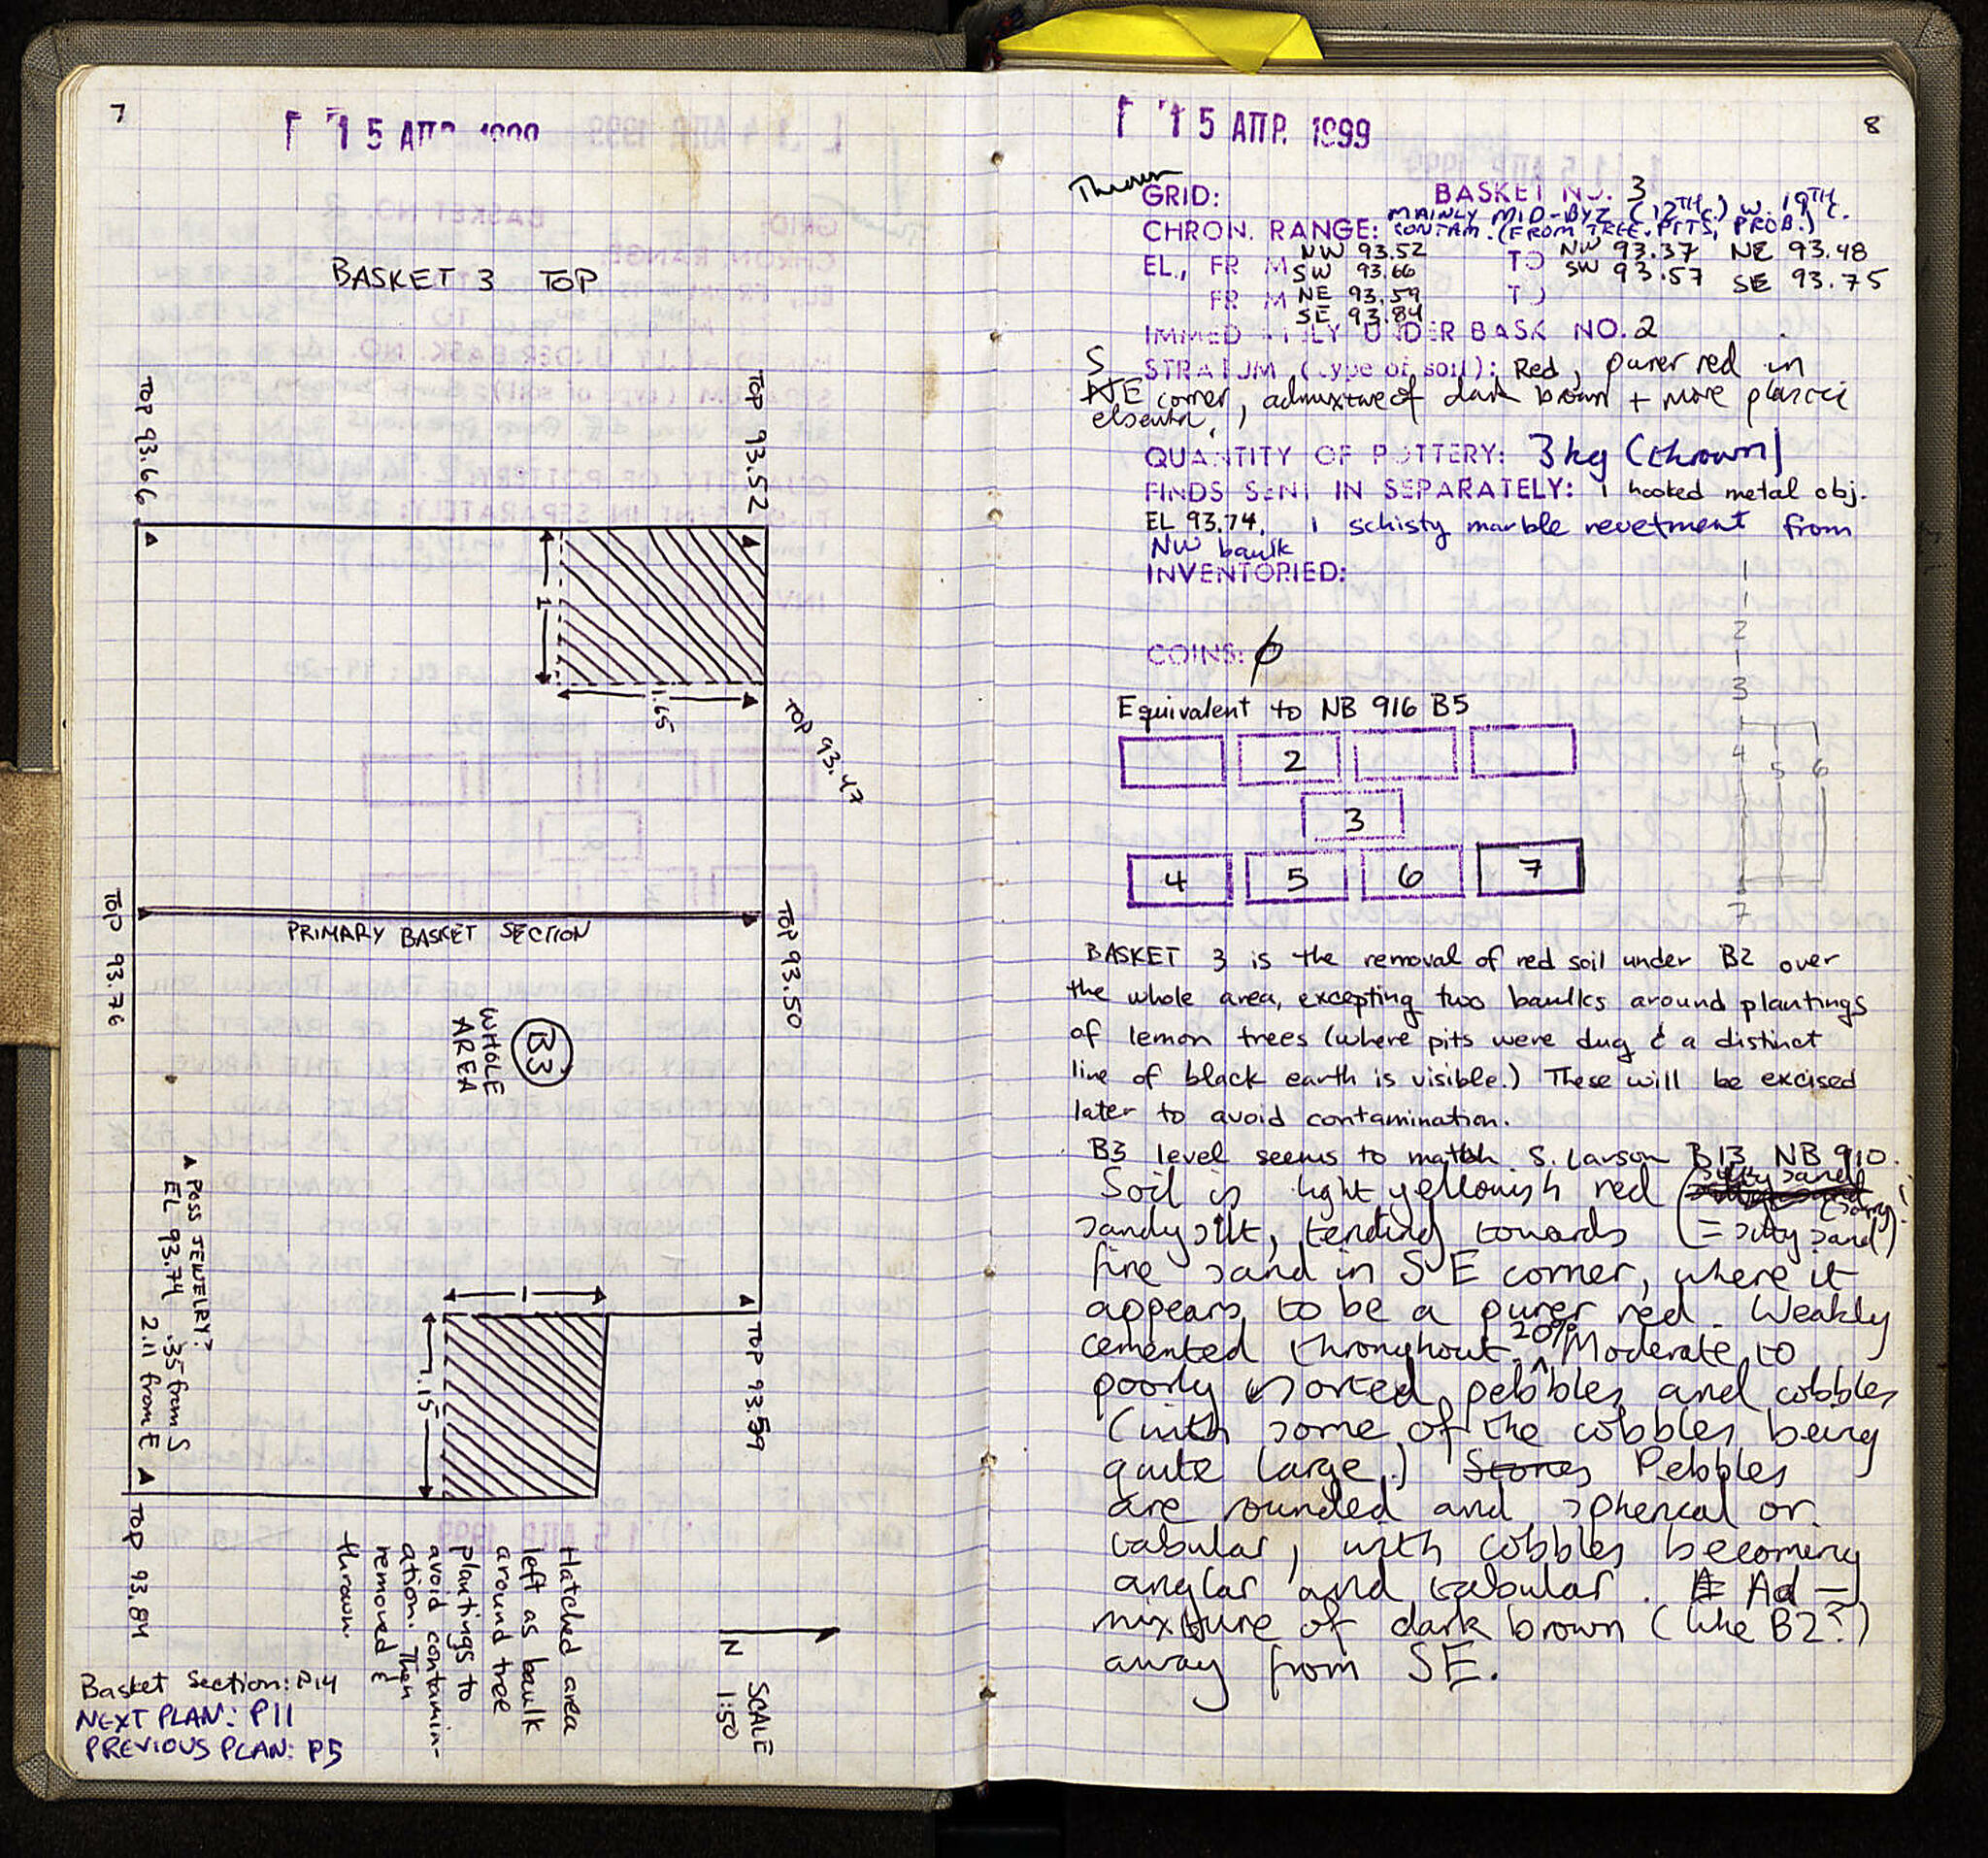 7
15 ΑΠΡ 1999
BASKET 3 TOP
TOP 93.66
TOP 93.52
1
1.65
TOP 93.47
PRIMARY BASKET SECTION
TOP 93.76
TOP 93.50
B3
WHOLE
AREA
POSS JEWELRY?
EL 93.74 .35 from S
2.11 from E
1
1.15
TOP 93.59
TOP 93.84
Hatched area
left as baulk
around tree
plantings to
avoid contamin-
ation. Then
removed &
thrown.
N
SCALE
1:50
Basket Section: P14
NEXT PLAN: P11
PREVIOUS PLAN: P5
15 ΑΠΡ. 1999
8
Thrown
GRID: BASKET NO. 3
CHRON. RANGE: MAINLY MID-BYZ (12TH C.) W. 19TH C.
CONTAM. (FROM TREE PITS, PROB.)
EL., FR M NW 93.52 TO NW 93.37 NE 93.48
SW 93.66 SW 93.57 SE 93.75
FR M NE 93.59 TO
SE 93.84
IMMED LY UNDER BASK NO. 2
STRATUM (type of soil): Red, purer red in
SE corner, admixture of dark brown + more plastic
elsewhr.
QUANTITY OF POTTERY: 3 kg (thrown)
FINDS SENT IN SEPARATELY: 1 hooked metal obj.
EL 93.74. 1 schisty marble revetment from
NW baulk
INVENTORIED:
COINS: ϕ
Equivalent to NB 916 B5
2
3
4 5 6 7
1
2
3
4
5 6
7
BASKET 3 is the removal of red soil under B2 over
the whole area, excepting two baulks around plantings
of lemon trees (where pits were dug & a distinct
line of black earth is visible.) These will be excised
later to avoid contamination.
B3 level seems to match S. Larson B13 NB 910.
Soil is light yellowish red (silty sand
(sorry!
sandy silt, tending towards (= silty sand)
fine sand in SE corner, where it
appears to be a purer red. Weakly
cemented throughout. 20% Moderate to
poorly sorted pebbles and cobbles
(with some of the cobbles being
quite large.) Stones Pebbles
are rounded and spherical or
tabular, with cobbles becoming
anglar and tabular. Ad-
mixture of dark brown (like B2?)
away from SE.